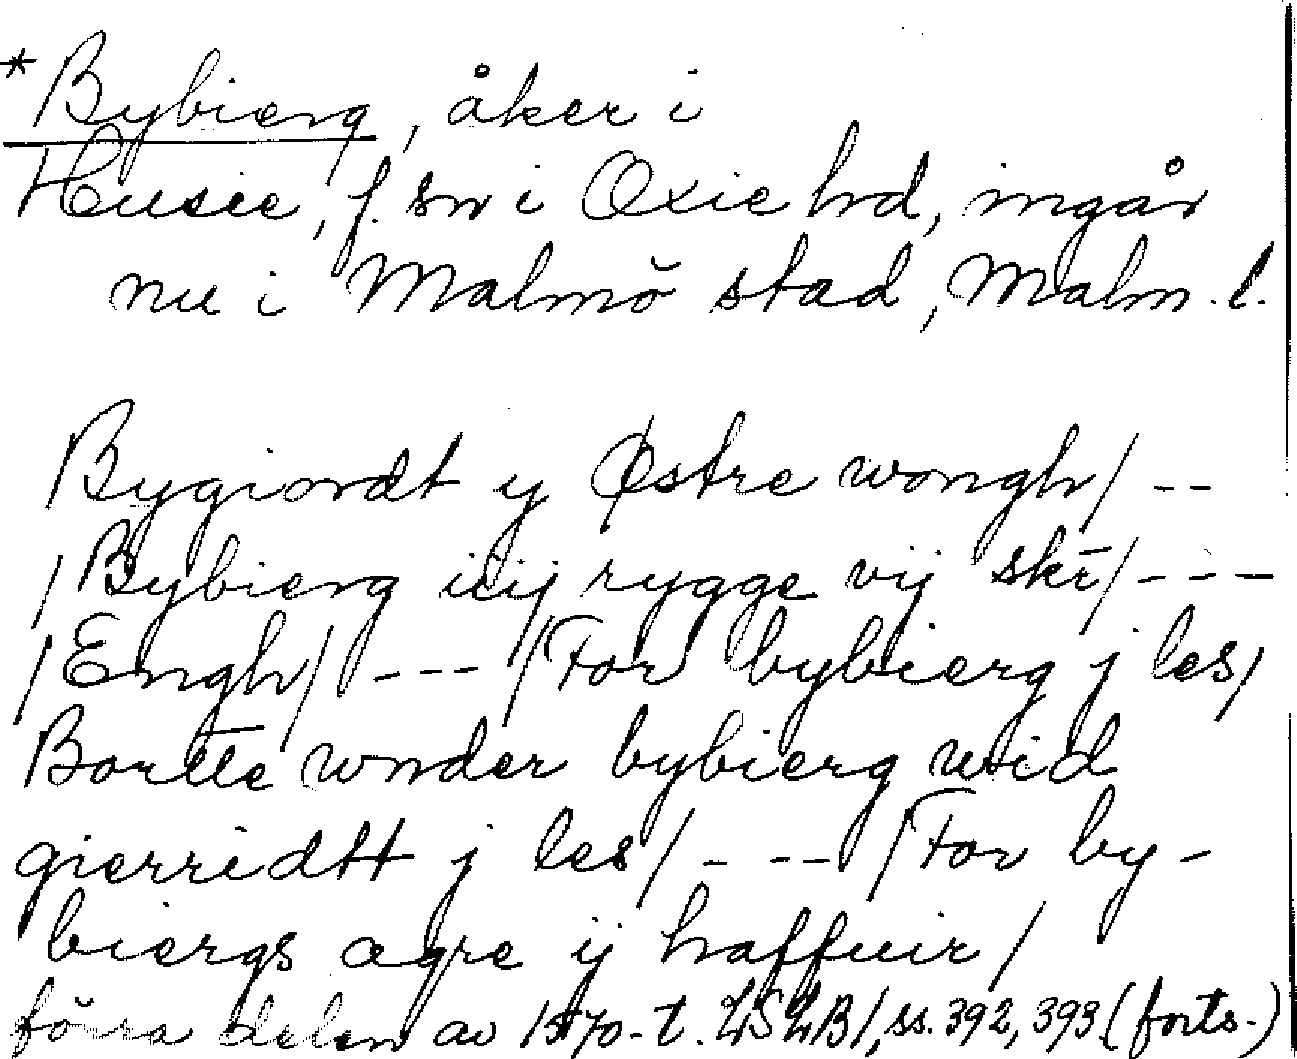 *Bybierg, åker i
Husie, f. sn i Oxie hd, ingår
nu i Malmö stad, Malm. l.
Bygiordt y Østre wongh/ --
/Bybierg iiij rygge vij skr̄/ ---
/Engh/ --- /For bybierg j les/
Bortte wnder bybierg wid
gierredtt j les/ --- /For by-
biergs agre ij haffuir/
förra delen av 1570-t. LSLB1, ss. 392, 393 (forts.)